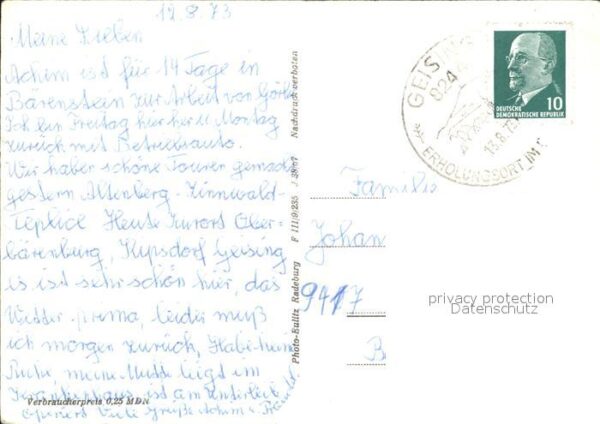 12.8.73
Meine Lieben
Achim ist für 14 Tage in
Bärenstein zur Arbeit von
Ich bin Freitag hierher u. Montag
zurück mit Betriebsauto.
Wir haben schöne Touren gemacht
gestern Altenberg - Zinnwald -
Teplice Heute Kurort Ober-
bärenburg, Kipsdorf Geising
es ist sehr schön hier, das
Wetter prima, leider muß
ich morgen zurück, Habe keine
Ruhe, meine Mutti liegt im
Krankenhaus, ist am Unterleib
operiert Viele Grüße Achim u.
Verbraucherpreis 0,25 MDN
Photo-Eulitz Radeburg F III/9/235 J 38/67 Nachdruck verboten
GEISING
824
ERHOLUNGSORT IM
13.8.73
DEUTSCHE
DEMOKRATISCHE REPUBLIK
10
Familie
Johan
9417
B
privacy protection
Datenschutz